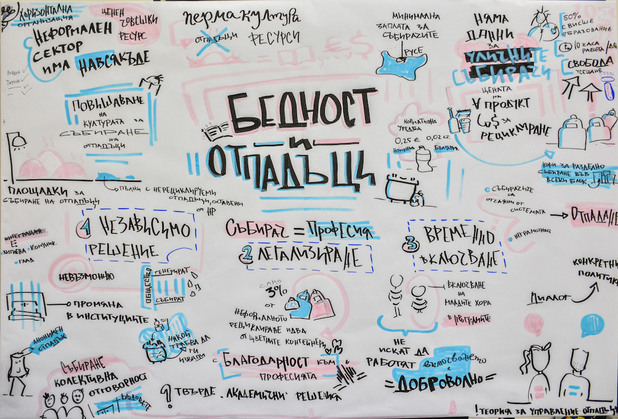 ХОРИЗОНТАЛНА
ОРГАНИЗАЦИЯ
НЕФОРМАЛЕН
СЕКТОР
ИМА НАВСЯКЪДЕ
ЦЕНЕН
ЧОВЕШКИ
РЕСУРС
ПЕРМАКУЛТУРА
ОТПАДЪЦИ
РЕСУРСИ
МИНИМАЛНА
ЗАПЛАТА ЗА
СЪБИРАЧИТЕ
РУСЕ
НЯМА
ДАННИ
ЗА
УЛИЧНИТЕ
СЪБИРАЧИ
50%
С ВИСШЕ
ОБРАЗОВАНИЕ
10 ЧАСА РАБОТА
СВОБОДА
ПОВИШАВАНЕ
НА
КУЛТУРАТА
ЗА
СЪБИРАНЕ
НА
ОТПАДЪЦИ
БЕДНОСТ
И
ОТПАДЪЦИ
0,25 € 0,02 €
ЦЕНАТА
НА
ПРОДУКТ
$
ЗА
РЕЦИКЛИРАНЕ
ПЛОЩАДКИ ЗА
СЪБИРАНЕ НА ОТПАДЪЦИ
КОФИ ЗА РАЗДЕЛНО
СЪБИРАНЕ
СЪБИРАЧИТЕ
СИСТЕМАТА
ОТПАДАНЕ
1 НЕЗАВИСИМО
РЕШЕНИЕ
СЪБИРАЧ = ПРОФЕСИЯ
2 ЛЕГАЛИЗИРАНЕ
3 ВРЕМЕННО
ВКЛЮЧВАНЕ
ГЛАД
НЕВЪЗМОЖНО
ПРОМЯНА
В ИНСТИТУЦИИТЕ
ОБЩЕСТВО
ГЕНЕРИРАТ
СЪБИРАТ
САМО
3%
ОТ
НЕФОРМАЛНОТО
РЕЦИКЛИРАНЕ ИДВА
ОТ ЦВЕТНИТЕ КОНТЕЙНЕРИ
ВКЛЮЧВАНЕ
НА
МЛАДИТЕ ХОРА
КОНКРЕТНИ
ПОЛИТИКИ
ДИАЛОГ
АНОНИМЕН
НЯКОЙ
ТРЯБВА ДА
СЪБИРАНЕ
КОЛЕКТИВНА
ОТГОВОРНОСТ
БЛАГОДАРНОСТ КЪМ
ПРОФЕСИЯТА
? ТВЪРДЕ АКАДЕМИЧНИ РЕШЕНИЯ
НЕ
ИСКАТ ДА
РАБОТЯТ
= ДОБРОВОЛНО =
! ТЕОРИЯ ЗА УПРАВЛЕНИЕ ОТПАДЪЦИ